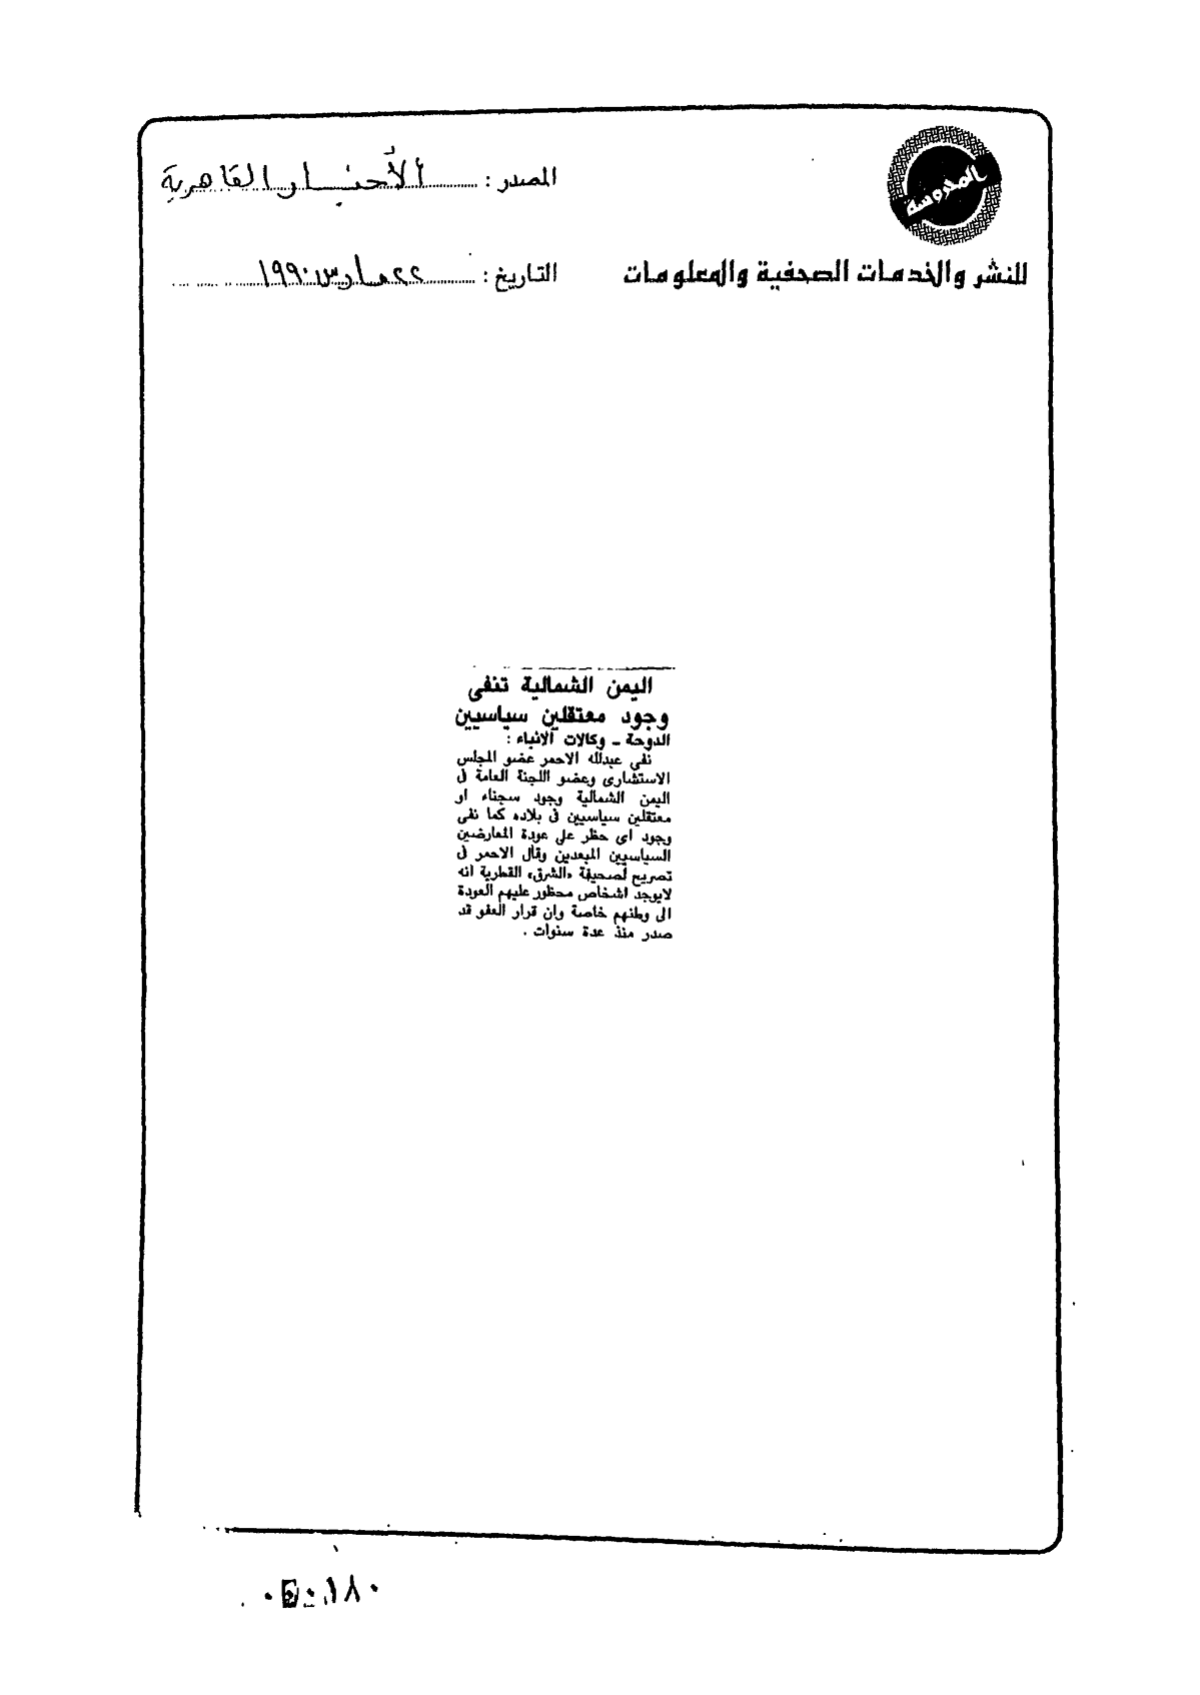 المحروسة
المصدر : الأخبار القاهرية
للنشر والخدمات الصحفية والمعلومات
التاريخ : ٢٢ مارس ١٩٩٠
اليمن الشمالية تنفى
وجود معتقلين سياسيين
الدوحة ـ وكالات الانباء :
نفى عبدالله الاحمر عضو المجلس
الاستشارى وعضو اللجنة العامة فى
اليمن الشمالية وجود سجناء او
معتقلين سياسيين فى بلاده كما نفى
وجود اى حظر على عودة المعارضين
السياسيين المبعدين وقال الاحمر فى
تصريح لصحيفة «الشرق» القطرية انه
لايوجد اشخاص محظور عليهم العودة
الى وطنهم خاصة وان قرار العفو قد
صدر منذ عدة سنوات .